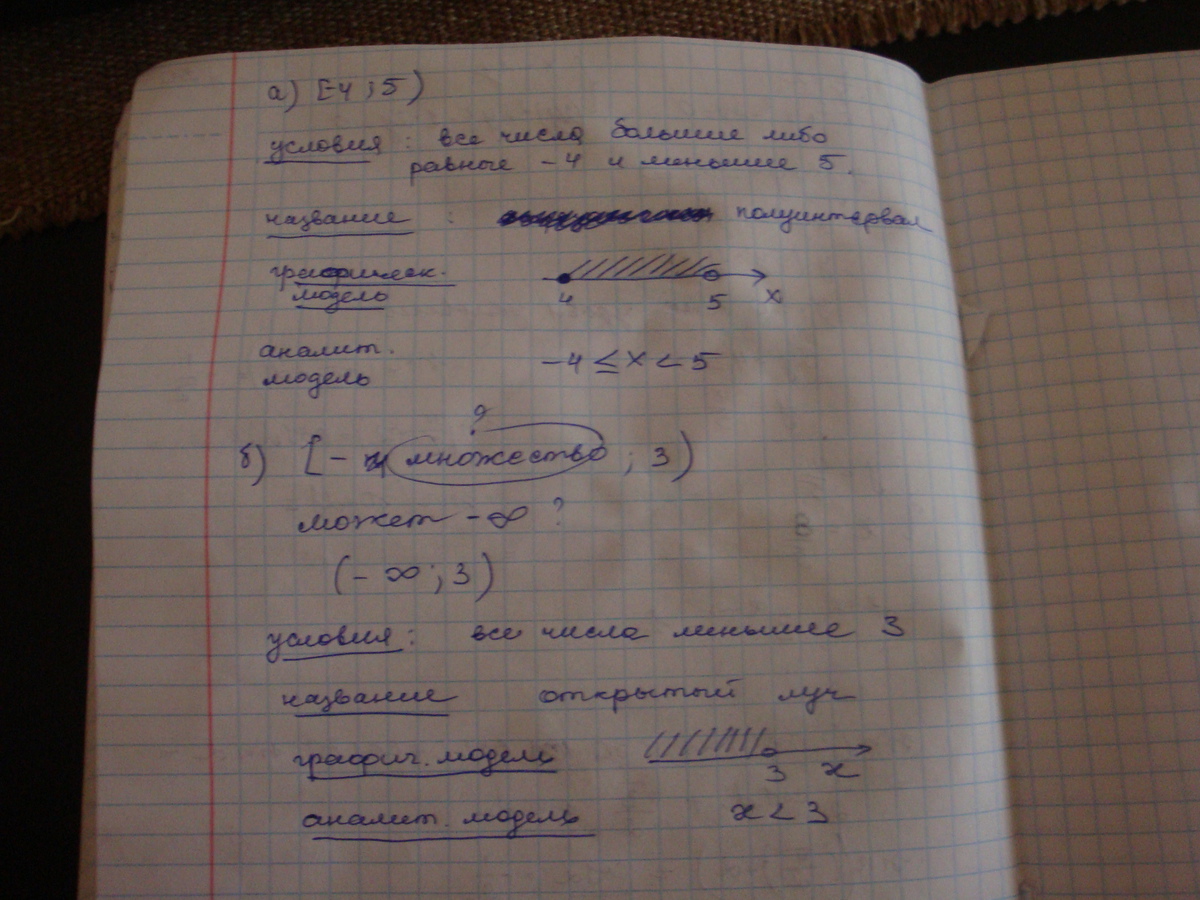 а) [-4 ; 5)
условия : все числа большие либо
равные -4 и меньшие 5.
название : полуинтервал
графическ.
модель
4 5 x
аналит.
модель
-4 ≤ x < 5
?
б) [- множество ; 3)
может -∞ ?
(- ∞ ; 3)
условия : все числа меньшее 3
название открытый луч
графич. модель
3 x
аналит. модель x < 3